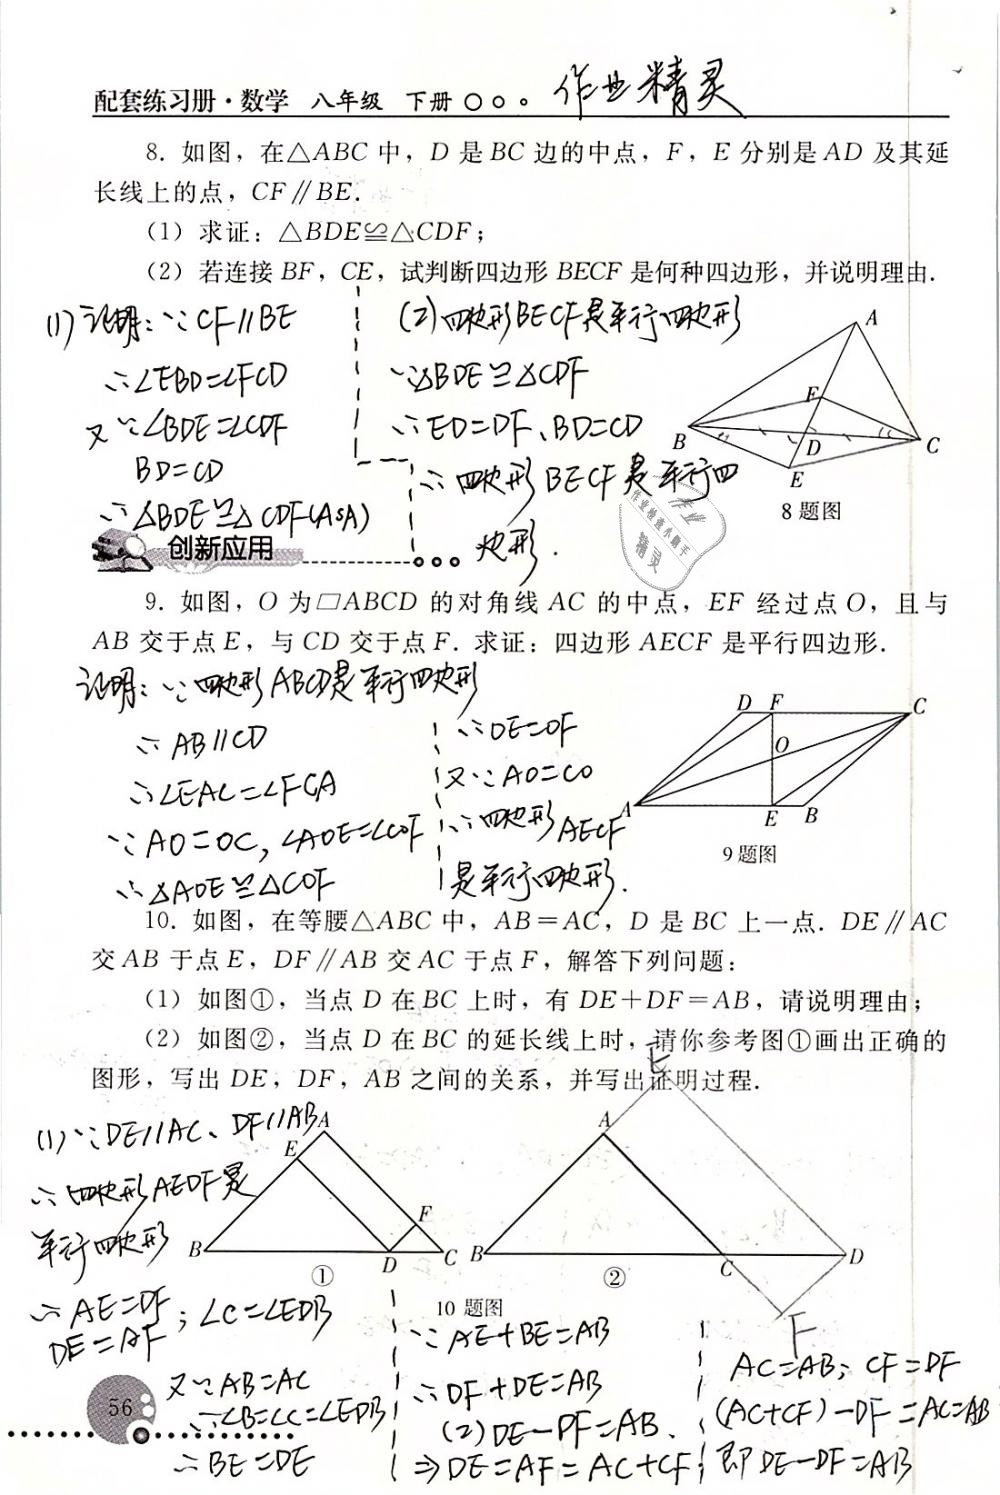 配套练习册·数学 八年级 下册○○。 作业精灵
8. 如图，在△ABC 中，D 是 BC 边的中点，F，E 分别是 AD 及其延
长线上的点，CF∥BE.
(1) 求证：△BDE≌△CDF；
(2) 若连接 BF，CE，试判断四边形 BECF 是何种四边形，并说明理由.
(1)证明：∵CF∥BE
∴∠EBD=∠FCD
又∵∠BDE=∠CDF
BD=CD
∴△BDE≌△CDF(ASA)
(2)四边形BECF是平行四边形
∵△BDE≌△CDF
∴ED=DF、BD=CD
∴四边形BECF是平行四
边形.
A
F
B
D
C
E
8题图
作业
作业检查小助手
精灵
创新应用
9. 如图，O 为□ABCD 的对角线 AC 的中点，EF 经过点 O，且与
AB 交于点 E，与 CD 交于点 F. 求证：四边形 AECF 是平行四边形.
证明：∵四边形ABCD是平行四边形
∴AB∥CD
∴∠EAC=∠FCA
∵AO=OC，∠AOE=∠COF
∴△AOE≌△COF
∴OE=OF
又∵AO=CO
∴四边形AECF
是平行四边形.
D F C
O
A E B
9题图
10. 如图，在等腰△ABC 中，AB=AC，D 是 BC 上一点. DE∥AC
交 AB 于点 E，DF∥AB 交 AC 于点 F，解答下列问题：
(1) 如图①，当点 D 在 BC 上时，有 DE+DF=AB，请说明理由；
(2) 如图②，当点 D 在 BC 的延长线上时，请你参考图①画出正确的
图形，写出 DE，DF，AB 之间的关系，并写出证明过程.
(1)∵DE∥AC、DF∥AB
∴四边形AEDF是
平行四边形
∴AE=DF；∠C=∠EDB
DE=AF
又∵AB=AC
∴∠B=∠C=∠EDB
∴BE=DE
A
E
F
B D C
①
E
A
B C D
F
②
10 题图
∵AE+BE=AB
∴DF+DE=AB
(2)DE-DF=AB、
⇒DE=AF=AC+CF；
AC=AB；CF=DF
(AC+CF)-DF=AC=AB
即DE-DF=AB
56